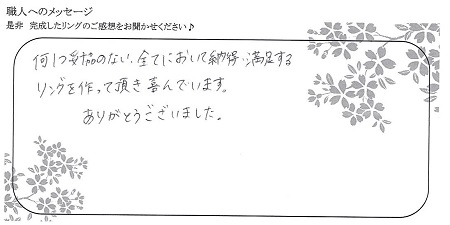 職人へのメッセージ
是非 完成したリングのご感想をお聞かせください♪
何1つ妥協のない、全てにおいて納得、満足する
リングを作って頂き喜んでいます。
ありがとうございました。